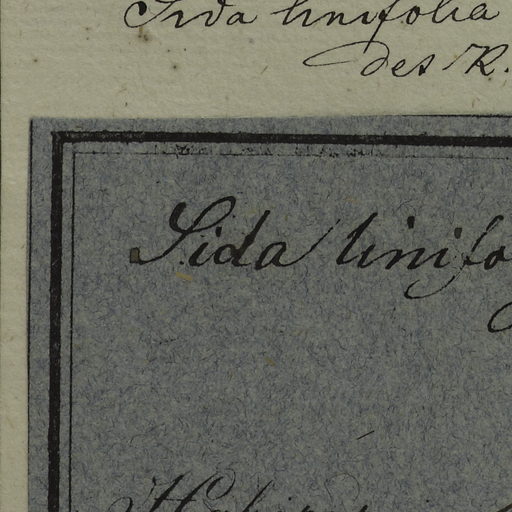 Sida linifolia
des R.
Sida linifo